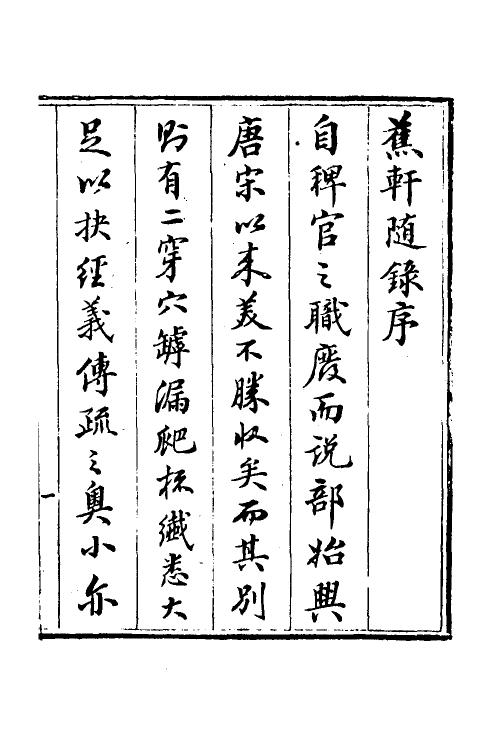 蕉軒随錄序
自稗官之職廢而说部始興
唐宋以来美不勝收矣而其別
則有二穿穴罅漏爬梳纖悉大
足以抉經義傳疏之奧小亦
一